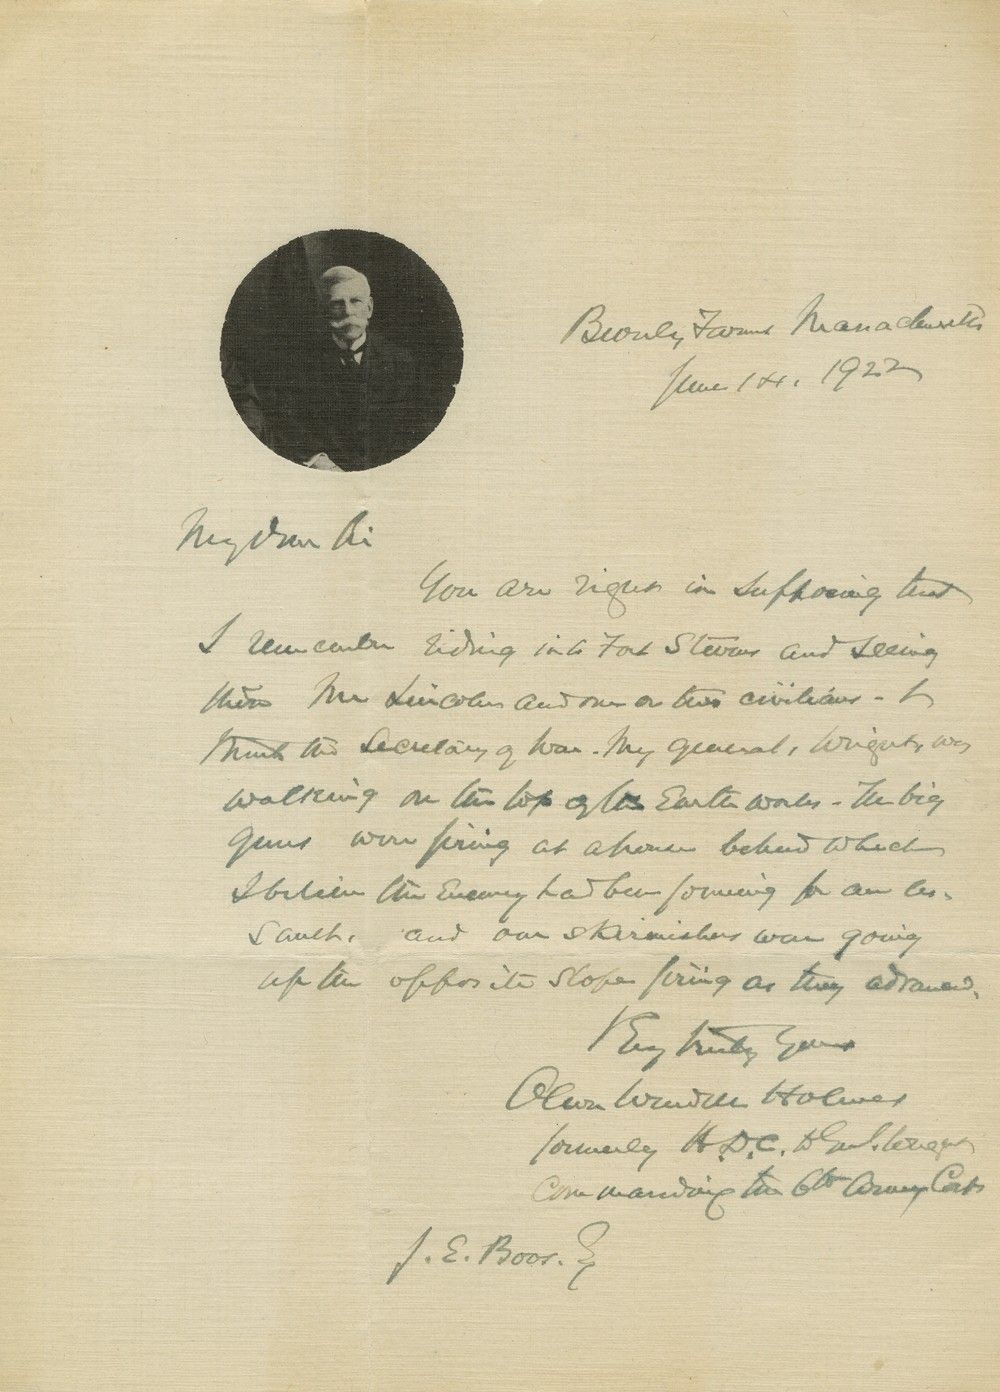 Beverly Farms Massachusetts
June 14. 1922
My dear Sir
You are right in supposing that
I remember riding into Fort Stevens and seeing
there Mr Lincoln and one or two civilians - I
think the Secretary of War. My general, Wright, was
walking on the top of the Earthworks - The big
guns were firing at a house behind which
I believe the Enemy had been forming for an as-
sault, and our skirmishers were going
up the opposite slope firing as they advanced.
Very truly yours
Oliver Wendell Holmes
formerly A.D.C. to Genl. Wright
Commanding the 6th Army Corps
J. E. Boos. Esq